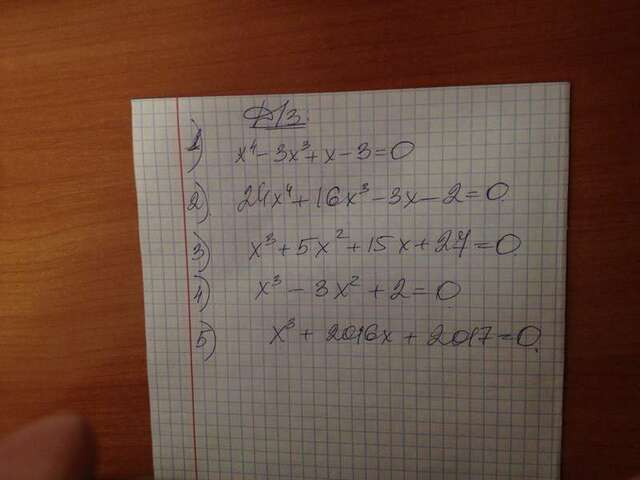 Д/З.
1) x⁴ - 3x³ + x - 3 = 0
2) 24x⁴ + 16x³ - 3x - 2 = 0.
3) x³ + 5x² + 15x + 27 = 0.
4) x³ - 3x² + 2 = 0.
5) x³ + 2016x + 2017 = 0.